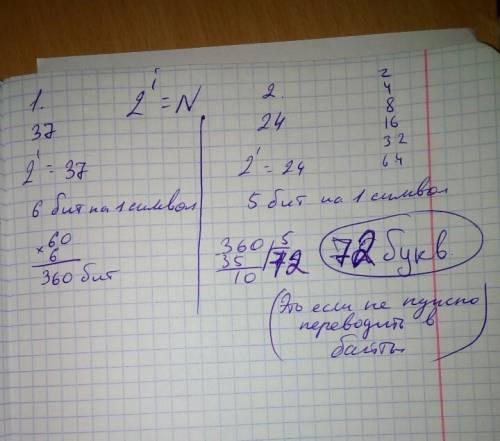 1.
2^i = N
37
2^i = 37
6 бит на 1 символ
× 60
6
360 бит
2.
24
2^i = 24
5 бит на 1 символ
360 | 5
35 | 72
10
72 букв
(Это если не нужно
переводить в
байты)
2
4
8
16
32
64